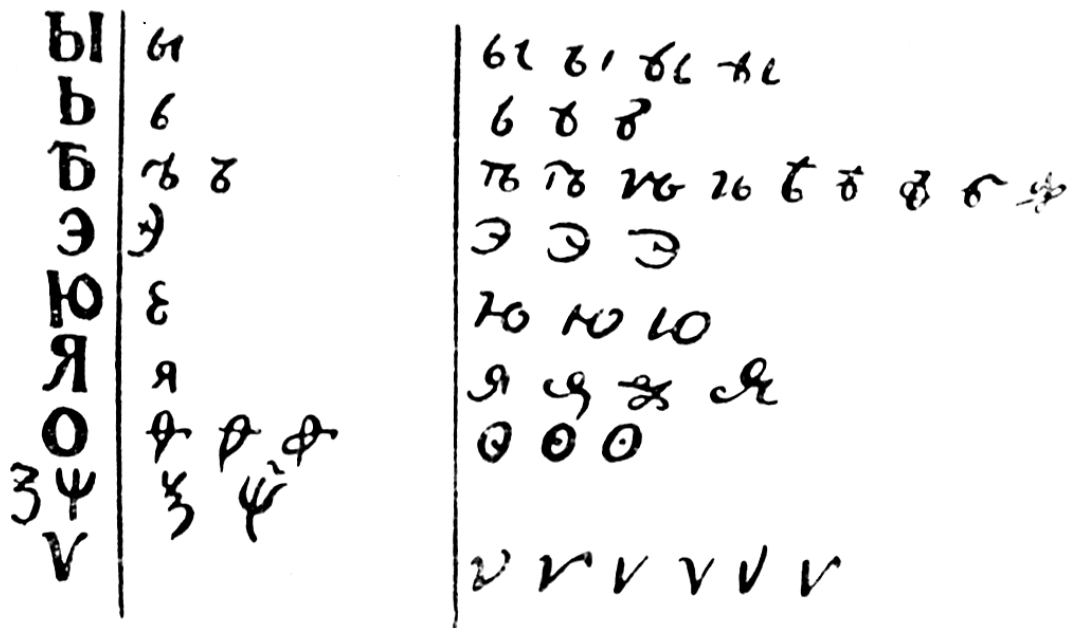 Ы ы ы ы ы ы
Ь ь ь ь ь
Ѣ ѣ ѣ ѣ ѣ ѣ ѣ ѣ ѣ ѣ ѣ
Э э Э Э Э
Ю ю ю ю
Я я я я я я
Ѳ ѳ ѳ ѳ ѳ ѳ ѳ
Ѯ Ѱ ѯ ѱ
Ѵ ѵ ѵ ѵ ѵ ѵ ѵ